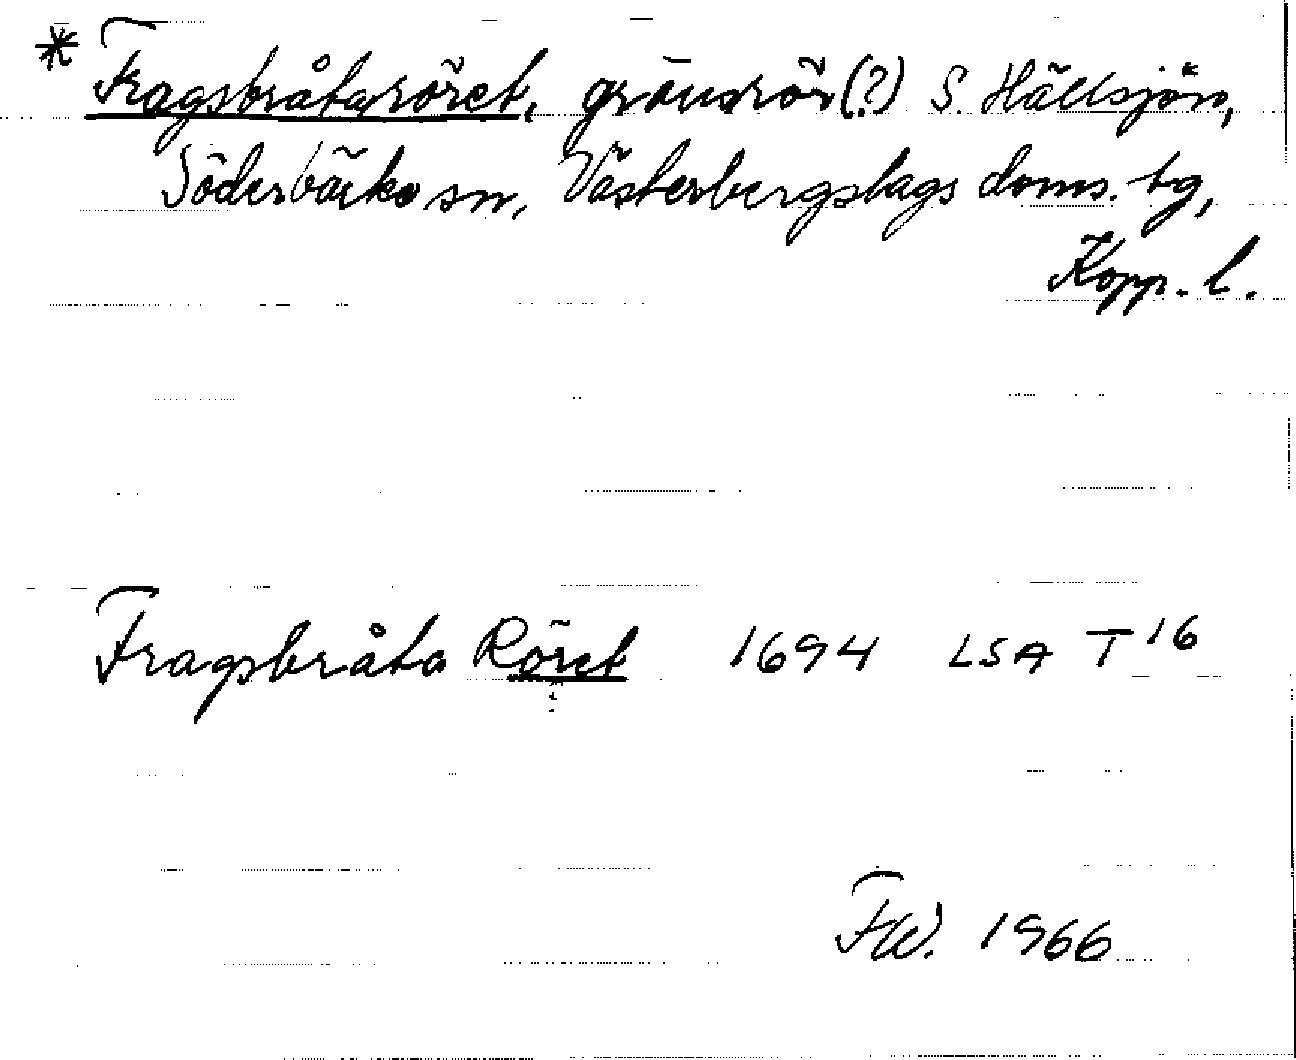 * Fragsbråtaröret, gränsrör (?) S. Hällsjön,
Söderbärke sn, Västerbergslags doms. tg,
Kopp. l.
Fragsbråta Röret 1694 LSA T 16
FW. 1966